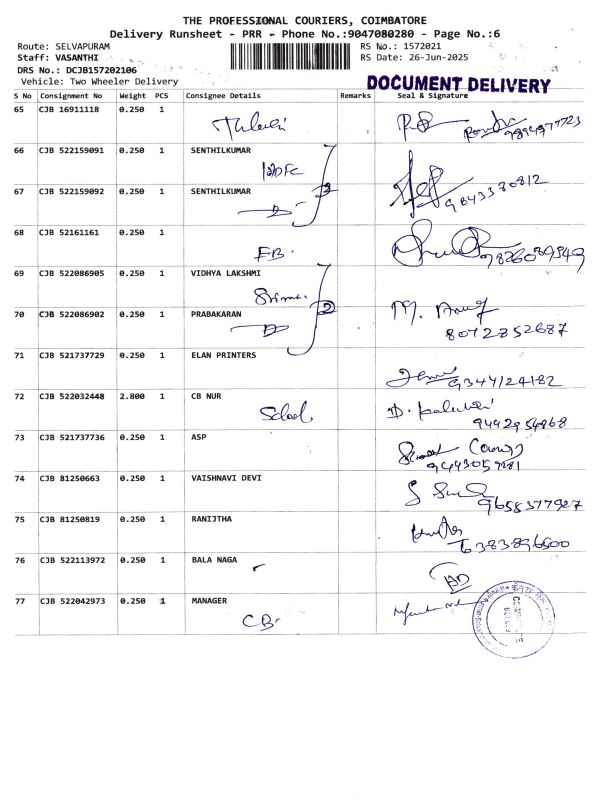 THE PROFESSIONAL COURIERS, COIMBATORE
Delivery Runsheet - PRR - Phone No.:9047080280 - Page No.:6
Route: SELVAPURAM RS No.: 1572021
Staff: VASANTHI RS Date: 26-Jun-2025
DRS No.: DCJB157202106
Vehicle: Two Wheeler Delivery
DOCUMENT DELIVERY
S No Consignment No Weight PCS Consignee Details Remarks Seal & Signature
65 CJB 16911118 0.250 1
66 CJB 522159091 0.250 1 SENTHILKUMAR
67 CJB 522159092 0.250 1 SENTHILKUMAR
9843370812
68 CJB 52161161 0.250 1
FB.
69 CJB 522086905 0.250 1 VIDHYA LAKSHMI
70 CJB 522086902 0.250 1 PRABAKARAN
8072852687
71 CJB 521737729 0.250 1 ELAN PRINTERS
9344124182
72 CJB 522032448 2.800 1 CB NUR
School
9442954868
73 CJB 521737736 0.250 1 ASP
9443057281
74 CJB 81250663 0.250 1 VAISHNAVI DEVI
9658377927
75 CJB 81250819 0.250 1 RANIJTHA
6383896500
76 CJB 522113972 0.250 1 BALA NAGA
77 CJB 522042973 0.250 1 MANAGER
CB.